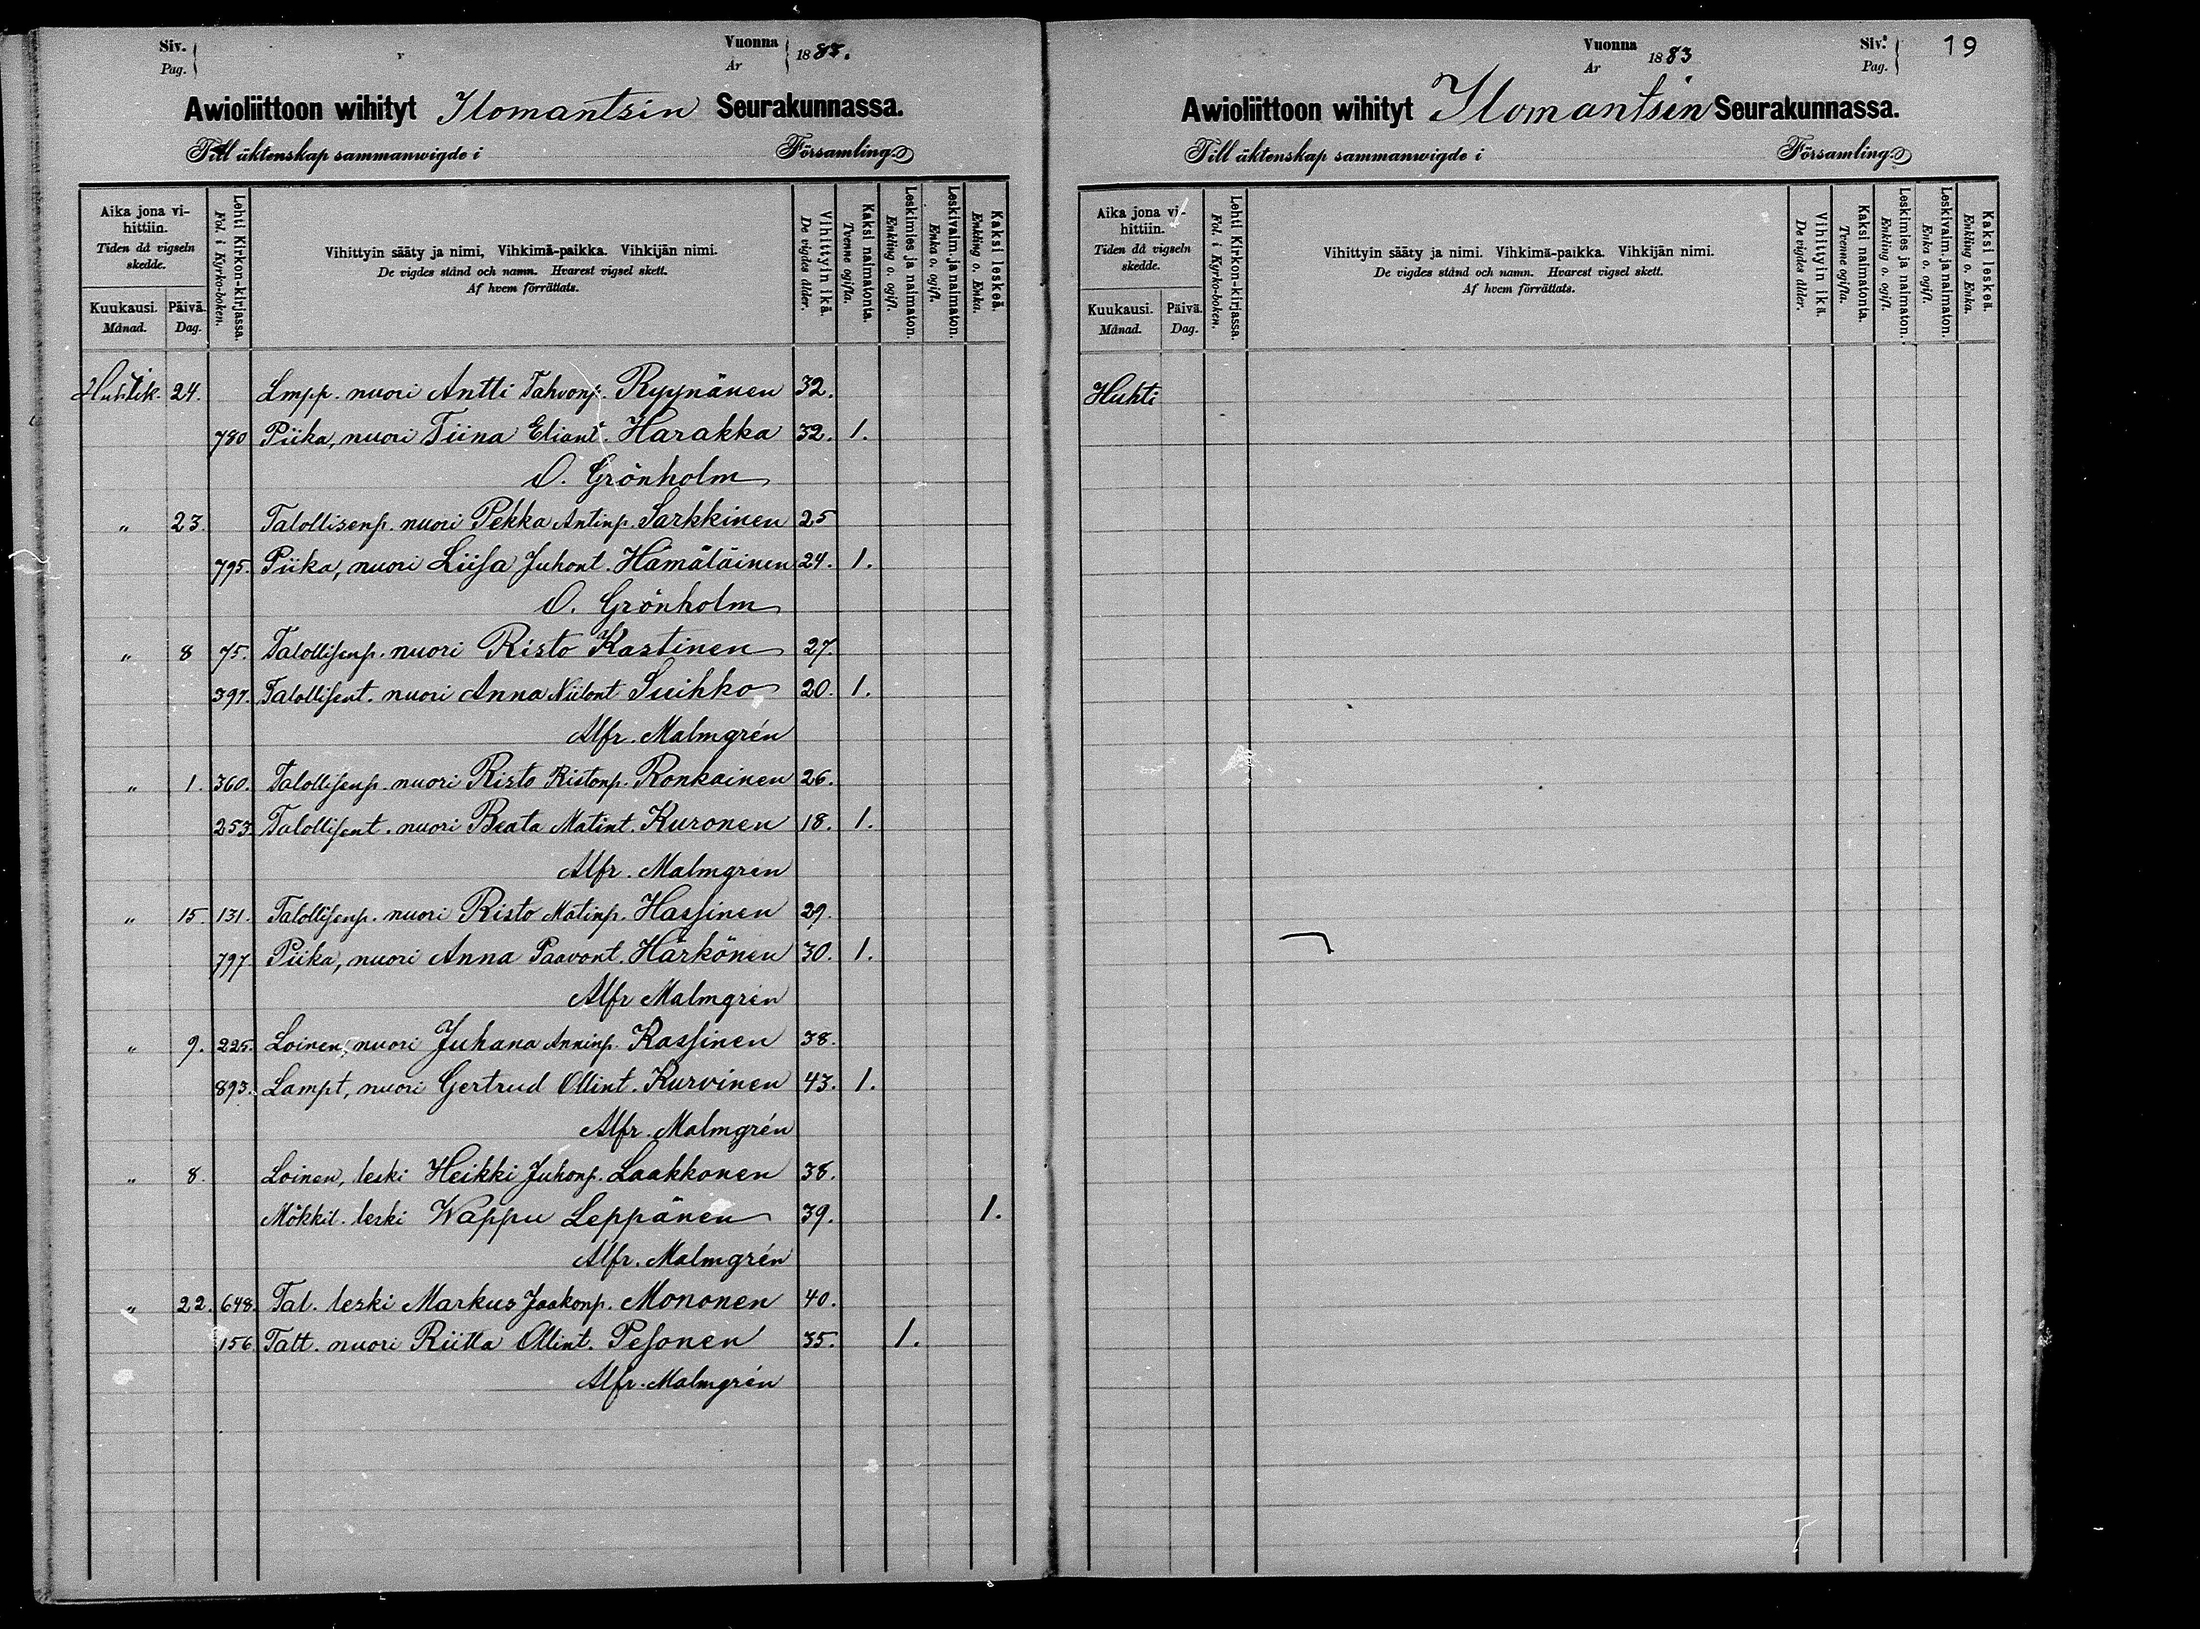 Siv. Vuonna
Pag. År 1883.
Awioliittoon wihityt Ilomantsin Seurakunnassa.
Till äktenskap sammanwigde i Församling
Aika jona vihittiin.
Tiden då vigseln skedde.
Kuukausi. Månad.
Päivä. Dag.
Lehti Kirkon-kirjassa.
Fol. i Kyrko-boken.
Vihittyin sääty ja nimi, Vihkimä-paikka. Vihkijän nimi.
De vigdes stånd och namn. Hvarest vigsel skett.
Af hvem förrättats.
Vihittyin ikä.
De vigdes ålder.
Kaksi naimatonta.
Tvenne ogifta.
Leskimies ja naimaton.
Enkling o. ogift.
Leskivaim. ja naimaton.
Enka o. ogift.
Kaksi leskeä.
Enkling o. Enka.
Huhtik. 24. Lmpp. nuori Antti Tahvonp. Ryynänen 32.
780 Piika, nuori Tiina Eliant. Harakka 32. 1.
O. Grönholm
" 23. Talollisenp. nuori Pekka Antinp. Sarkkinen 25
795. Piika, nuori Liisa Juhont. Hämäläinen 24. 1.
O. Grönholm
" 8 75. Talollisenp. nuori Risto Kastinen 27.
397. Talollisent. nuori Anna Niilont Suihko 20. 1.
Alfr. Malmgrén
" 1. 360. Talollisenp. nuori Risto Ristonp. Ronkainen 26.
253. Talollisent. nuori Beata Matint. Kuronen 18. 1.
Alfr. Malmgrén
" 15. 131. Talollisenp. nuori Risto Matinp. Hassinen 29.
797. Piika, nuori Anna Paavont. Härkönen 30. 1.
Alfr Malmgrén
" 9. 225. Loinen, nuori Juhana Anninp. Kassinen 38.
893. Lampt, nuori Gertrud Ollint. Kurvinen 43. 1.
Alfr. Malmgrén
" 8. Loinen, leski Heikki Juhonp. Laakkonen 38.
Mökkil. leski Wappu Leppänen 39. 1.
Alfr. Malmgrén
" 22. 648. Tal. leski Markus Jaakonp. Mononen 40.
156 Talt. nuori Riitta Ollint. Pesonen 35. 1.
Alfr. Malmgrén
Vuonna Siv. 19
År 1883 Pag.
Awioliittoon wihityt Ilomantsin Seurakunnassa.
Till äktenskap sammanwigde i Församling
Aika jona vihittiin.
Tiden då vigseln skedde.
Kuukausi. Månad.
Päivä. Dag.
Lehti Kirkon-kirjassa.
Fol. i Kyrko-boken.
Vihittyin sääty ja nimi. Vihkimä-paikka. Vihkijän nimi.
De vigdes stånd och namn. Hvarest vigsel skett.
Af hvem förrättats.
Vihittyin ikä.
De vigdes ålder.
Kaksi naimatonta.
Tvenne ogifta.
Leskimies ja naimaton.
Enkling o. ogift.
Leskivaim. ja naimaton.
Enka o. ogift.
Kaksi leskeä.
Enkling o. Enka.
Huhti